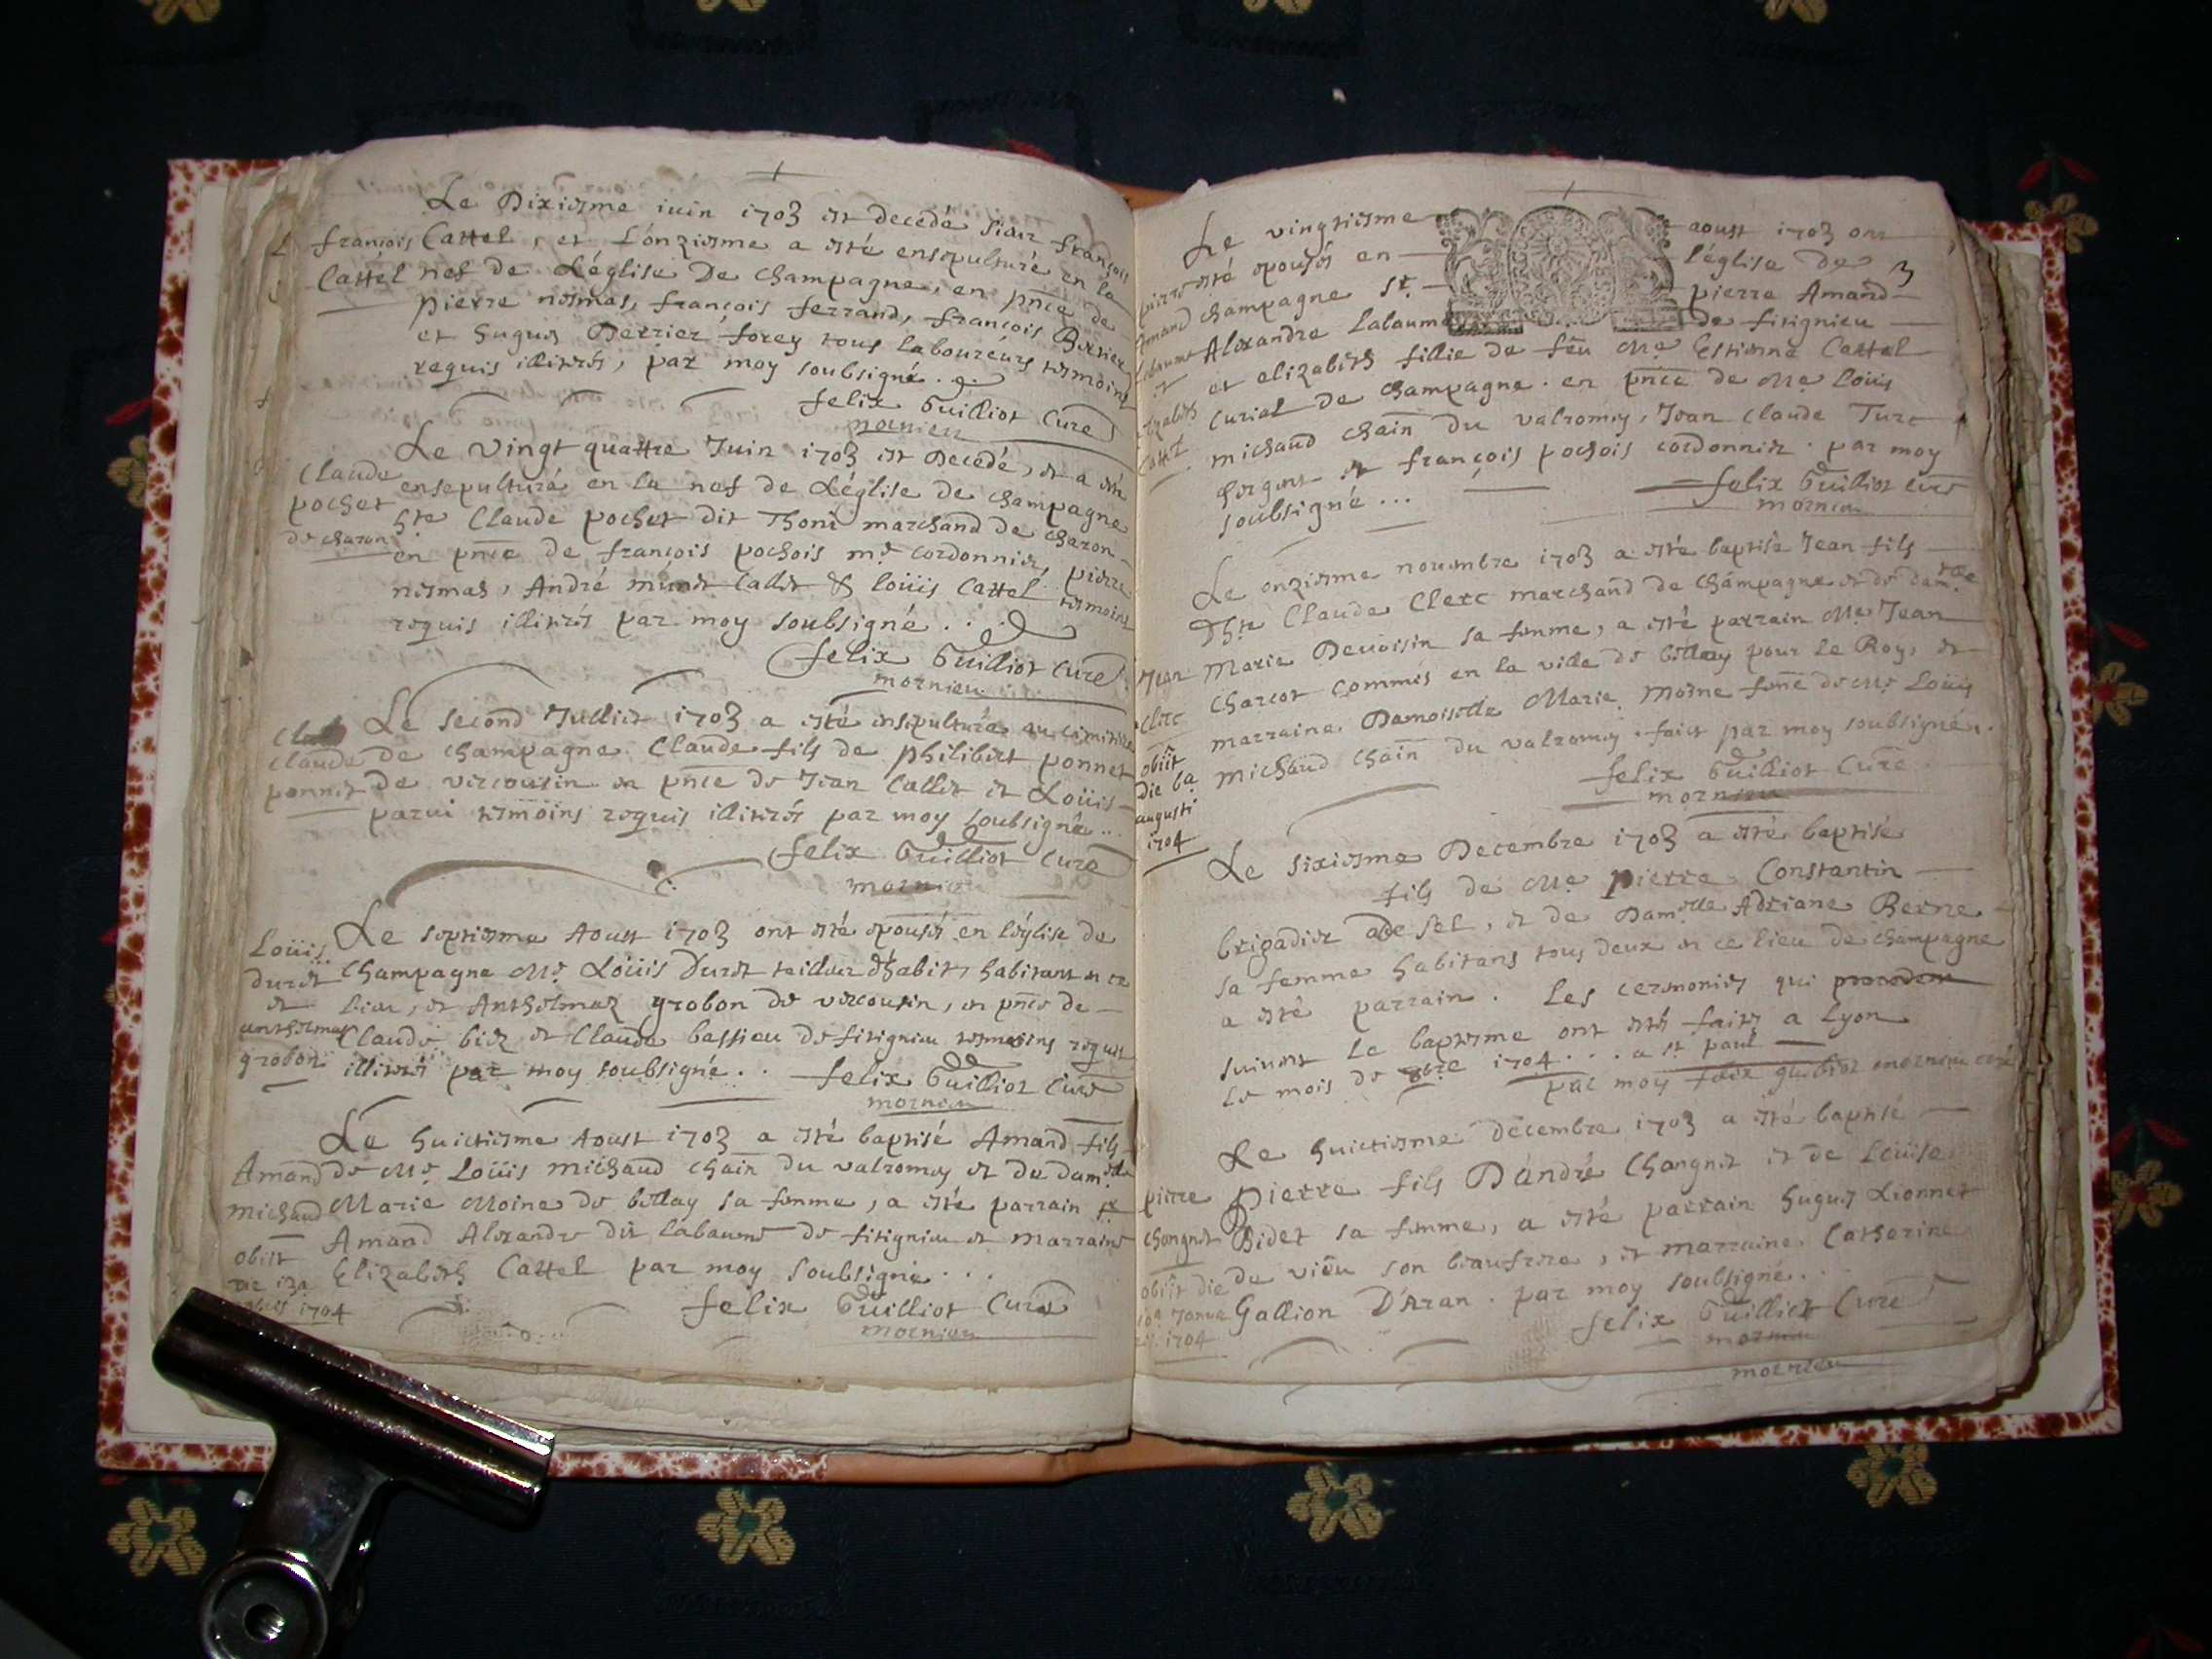 Le Dixiesme iuin 1703 est decedé Sieur françois
françois Cattel, et L'onziesme a esté ensepulturé en la
Cattel nef de L'église De Champagne, en pnce de
pierre nesmes, françois ferrand, françois Berrier
et hugues Berrier forey tous laboureurs tesmoins
requis illitérés, par moy soubsigné.
felix Guilliot Curé
mornieu
Le vingt quattre Juin 1703 est Decedé, et a esté
Claude ensepulturé en la nef de L'église de Champagne
pochet hte Claude pochet dit Thoni marchand de Charon
de charon en pnce de françois pochois me cordonnier, pierre
nesmes, André munet Callet & loüis Cattel tesmoins
requis illitérés par moy soubsigné.
felix Guilliot Curé
mornieu
Le second Julliet 1703 a esté ensepulturé au cimitiere
Claude de Champagne Claude fils de philibert ponnet
ponnet de vircousin en pnce de Jean Callet et Loüis
parui tesmoins requis illitérés par moy soubsigné...
felix Guilliot Curé
mornieu
Le septiesme Aoust 1703 ont esté epousés en l'églize de
Loüis
duret Champagne Me Loüis Duret tailleur d'habits habitant en ce
et lieu, et Anthelmaz grobon de vircousin, en pnce de
anthelmaz Claude biez et Claude bassieu de fitignieu tesmoins requis
grobon illitérés par moy soubsigné.. felix Guilliot Curé
mornieu
Le huictiesme Aoust 1703 a esté baptisé Amand fils
Amand de Me Loüis michaud chain du valromey et de damlle
michaud Marie Moine de bellay sa femme, a esté parrain sr
obiit Amand Alexandre dit labaume de fitignieu et marraine
die 13a Elizabeth Cattel par moy soubsigné...
1704 felix Guilliot Curé
mornieu
Le vingtiesme aoust 1703 ont
3
pierre esté epousés en l'église de
Amand Champagne sr. pierre Amand
labaume Alexandre Labaume de fitignieu
et et elizabeth fillie de feu Me Estienne Cattel
elizabeth Curial de Champagne. en pnce de Me Loüis
Cattel michaud chain du valromey, Jean Claude Turc
sergent et françois pochois cordonnier. par moy
soubsigné ... felix Guilliot curé
mornieu
Le onziesme nouembre 1703 a esté baptisé Jean fils
D'hte Claude Clerc marchand de Champagne et de damlle
Jean Marie Devoisin sa femme, a esté parrain Me Jean
Clerc Charcot Commis en la ville de bellay pour le Roy, et
marraine Damoiselle Marie moine feme de Me Loüis
obiit michaud chain du valromey. faict par moy soubsigné.
die 6a felix Guilliot Curé
augusti mornieu
1704
Le sixiesme Decembre 1703 a esté baptisé
fils de Me pierre Constantin
brigadier de sel, et de Damlle Adriane Berne
sa femme habitans tous deux en ce lieu de Champagne
a esté parrain. Les ceremonies qui
suivent le baptesme ont estés faites a Lyon
le mois de 1704... a st paul
par moy felix guilliot mornieu curé
Le huictiesme decembre 1703 a esté baptisé
pierre Pierre fils D'andré Changnet et de Loüise
Changnet Bidet sa femme, a esté parrain hugues Lionnet
obiit die de vieu son beaufrere, et marraine Catherine
Gallion D'Aran. par moy soubsigné..
1704 felix Guilliot Curé
mornieu
mornieu